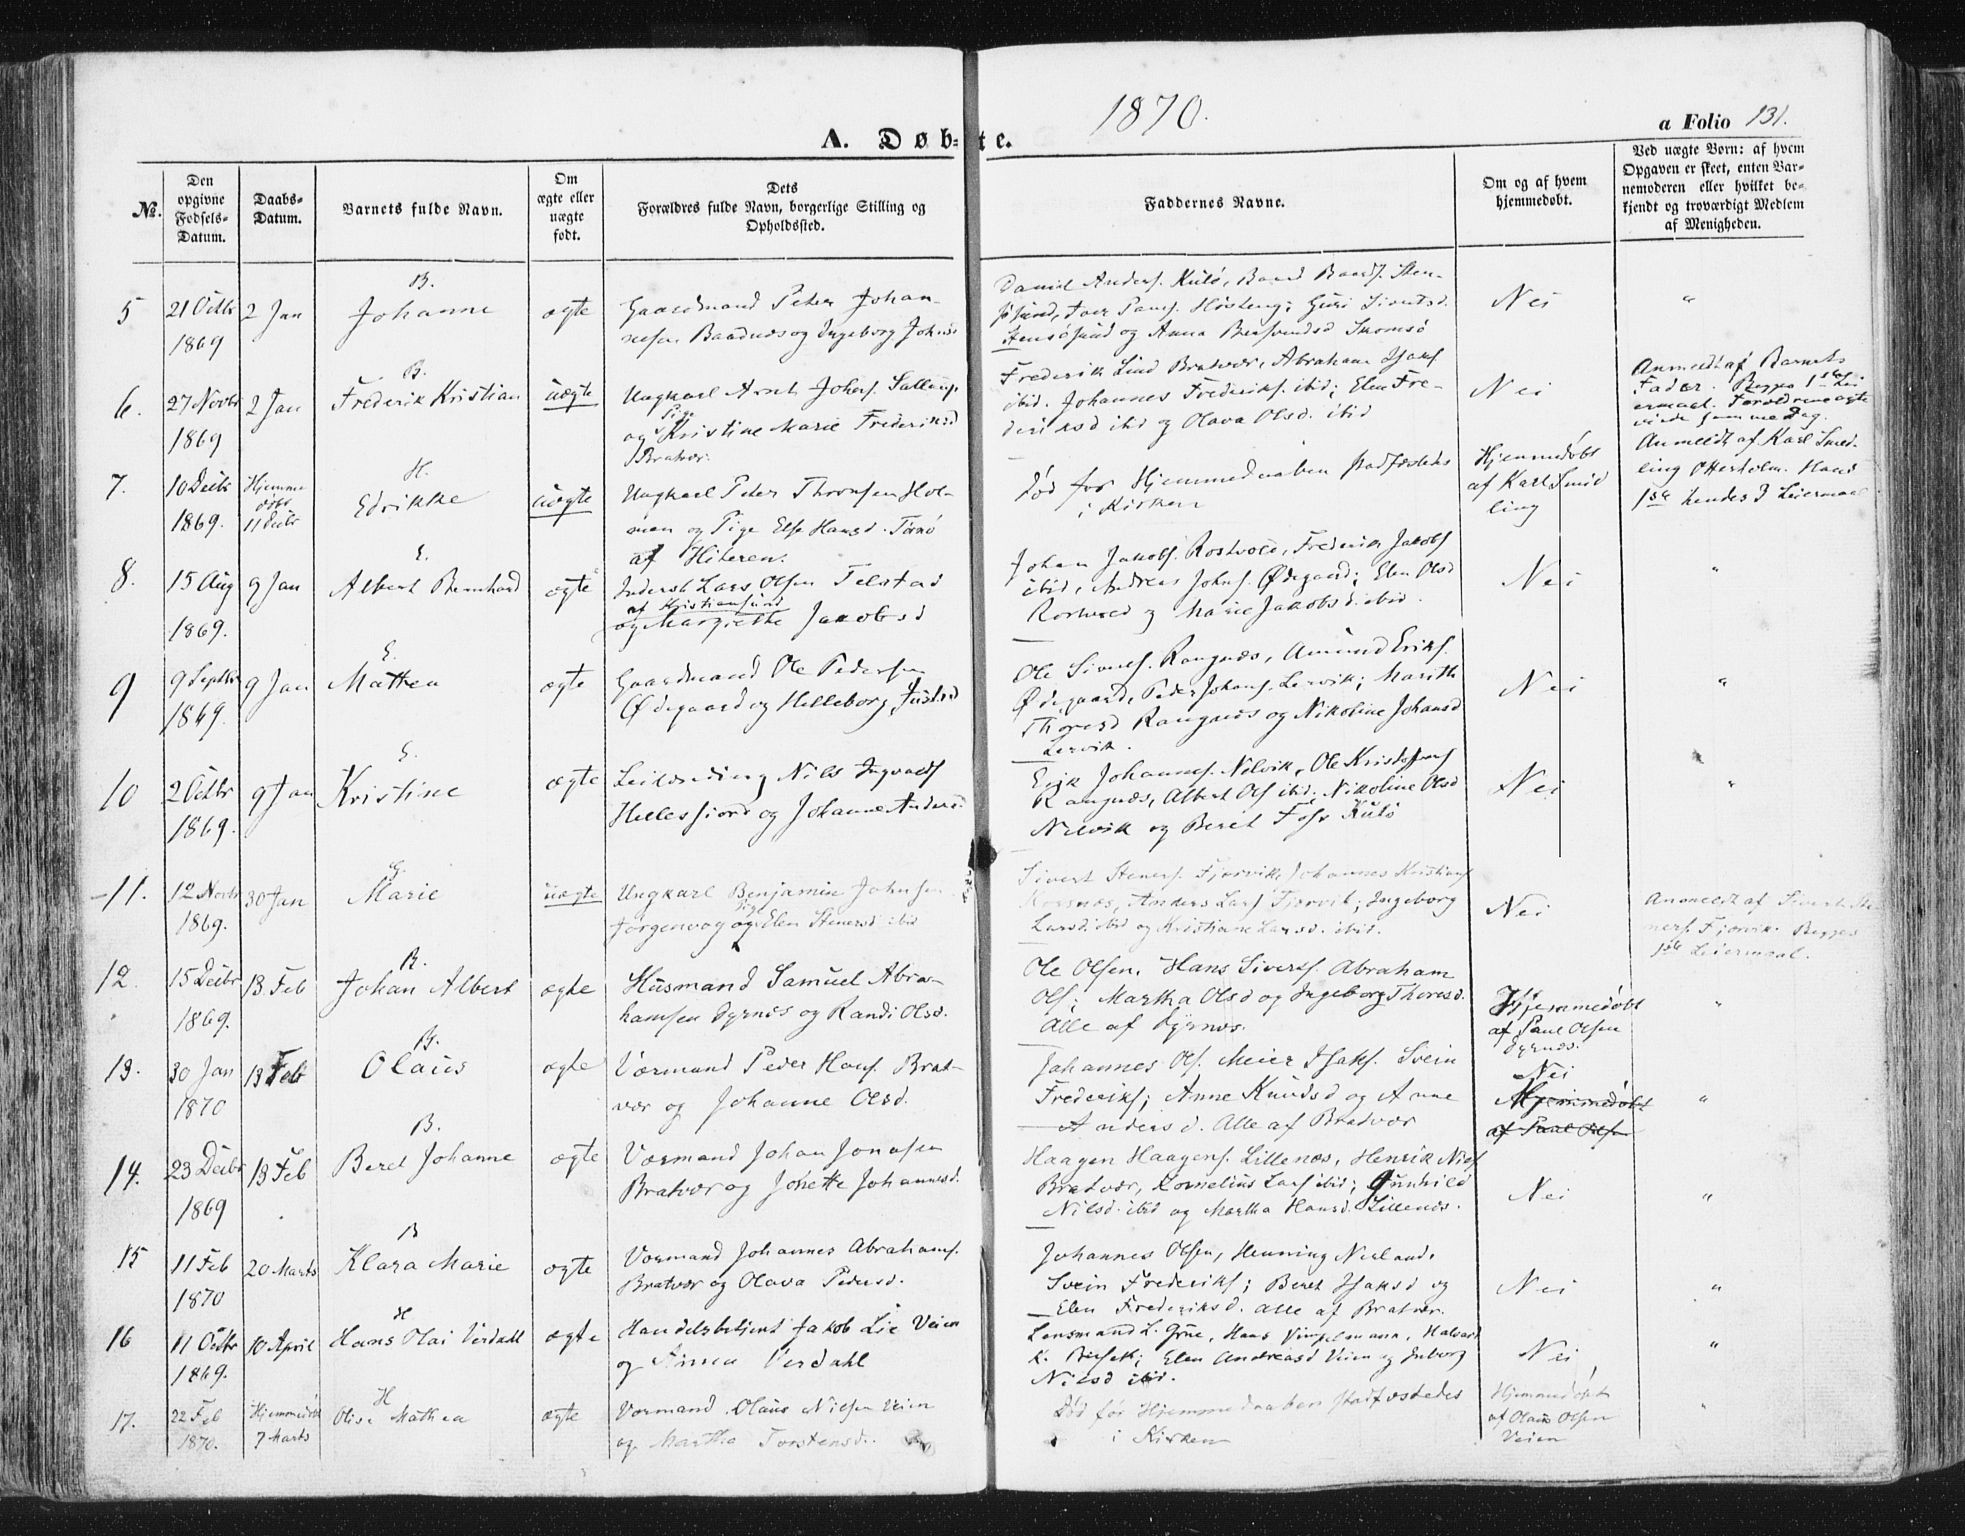 1870.
A. Døb-te.
a Folio 131.
No.
Den opgivne Fødsels-Datum.
Daabs-Datum.
Barnets fulde Navn.
Om ægte eller uægte født.
Dets Forældres fulde Navn, borgerlige Stilling og Opholdssted.
Faddernes Navne.
Om og af hvem hjemmedøbt.
Ved uægte Børn: af hvem Opgaven er skeet, enten Barnemoderen eller hvilket bekjendt og troværdigt Medlem af Menigheden.
B.
5 21 Octbr 2 Jan Johanne ægte Gaardmand Peter Johan-
1869 nesen Baadnæs og Ingeborg Johns
Daniel Anders. Kulø, Baard Baards. Sten-
Guri Siverts d.
og Anna
Nei "
B.
6. 27 Novbr 2 Jan Frederik Kristian uægte Ungkarl Arnt Johns.
1869 og Pige Kristine Marie Frederiksd
Bratvær.
Frederik Lind Bratvær, Abraham Isaks
ibid. Johannes Frederiks. ibid; Elen Fre-
deriksd ibid og Olava Olsd. ibid
Nei
Anmeldt af Barnets
Fader. Begges 1ste Lei
ermaal. Forældrene ægte
viede samme Dag.
H.
7. 10 Decbr Hjemme Edrikke uægte Ungkarl Peter Thronsen Hol-
døbt
1869. 11 Decbr men og Pige Else Hansd.
af Hiteren.
Død før Hjemmedaaben stadfæstedes
i Kirken
Hjemmedøbt
af Karl Smed
ling
Anmeldt af Karl Smed-
ling Otterholm. Hans
1ste hendes 3 Leiermaal
E.
8. 15 Aug 9 Jan Albert Bernhard ægte Inderst Lars Olsen Telstad
af Kristiansund
1869. og Margrethe Jakobsd
Johan Jakobs. Rostvold, Frederik Jakobs
ibid, Andreas Johns. Ødegaard; Elen Olsd
Rostvold og Marie Jakobsd. ibid.
Nei "
E.
9 9 Septbr 9 Jan Mathea ægte Gaardmand Ole Pedersen
1869. Ødegaard og Helleborg
Ole Sivers. Rangnæs, Amund Eriks.
Ødegaard, Peder Johans. Lervik; Marith
Thoresd Rangnæs og Nikoline Johansd
Lervik.
Nei "
E.
10 2 Octbr 9 Jan Kristine ægte Leilænding Nils Ingvalds
1869. Hellesfiord og Johanne Andersd
Erik Johannes. Nelvik, Ole Kristoffers
Rangnæs, Albert Ols ibid. Nikoline Olsd
Nelvik og Beret Kulø
Nei "
G.
11. 12 Novbr 30 Jan Marie uægte Ungkarl Benjamin Johnsen
1869. Jørgenvaag og Pige Elen Stenersd ibid
Sivert Steners. Fjorvik, Johannes Kristians
Korsnæs, Anders Lars Fjorvik; Ingeborg
Larsd. ibid og Kristiane Larsd. ibid.
Nei
Anmeldt af Sivert Ste-
ners. Fjorvik. Begges
1ste Leiermaal.
B.
12. 15 Decbr 13 Feb Johan Albert ægte Husmand Samuel Abra-
1869. hamsen Dyrnæs og Randi Olsd.
Ole Olsen, Hans Siverts. Abraham
Ols; Martha Olsd og Ingeborg Thoresd.
Alle af Dyrnæs.
Hjemmedøbt
af Paul Olsen
Dyrnæs.
"
B.
13. 30 Jan 13 Feb Olaus ægte Vormand Peder Hans. Brat-
1870 vær og Johanne Olsd.
Johannes Ols. Meier Isaks. Svein
Frederiks; Anne Knudsd og Anne
Andersd. Alle af Bratvær
Nei
Hjemmedøbt
af Paul Olsen
"
B.
14. 23 Decbr 13 Feb Beret Johanne ægte Vormand Johan Jonasen
1869 Bratvær og Jonette Johannesd.
Haagen Haagens. Lillenæs, Henrik Niels
Bratvær, Kornelius Lars ibid; Gunhild
Nilsd. ibid og Martha Hansd. Lillenæs.
Nei "
B
15 11 Feb 20 Marts Klara Marie ægte Vormand Johannes Abrahams.
1870 Bratvær og Olava Pedersd.
Johannes Olsen, Henning
Svein Frederiks; Beret Isaksd og
Elen Frederiksd. Alle af Bratvær.
Nei "
H
16 11 Octbr 10 April Hans Olai Verdahl ægte Handelsbetjent Jakob Lie Veien
1869. og Anna Verdahl
Lensmand L. Grue, Hans
Elen Andreasd Veien og Inborg
Nilsd ibid.
Nei "
H
17. 22 Feb Hjemmedøbt Olise Mathea ægte Vormand. Olaus Nilsen Veien
1870. 7 Marts og Martha Torstensd.
Død før Hjemmedaaben stadfæstedes
i Kirken
Hjemmedøbt
af Olaus Olsen
Veien
"